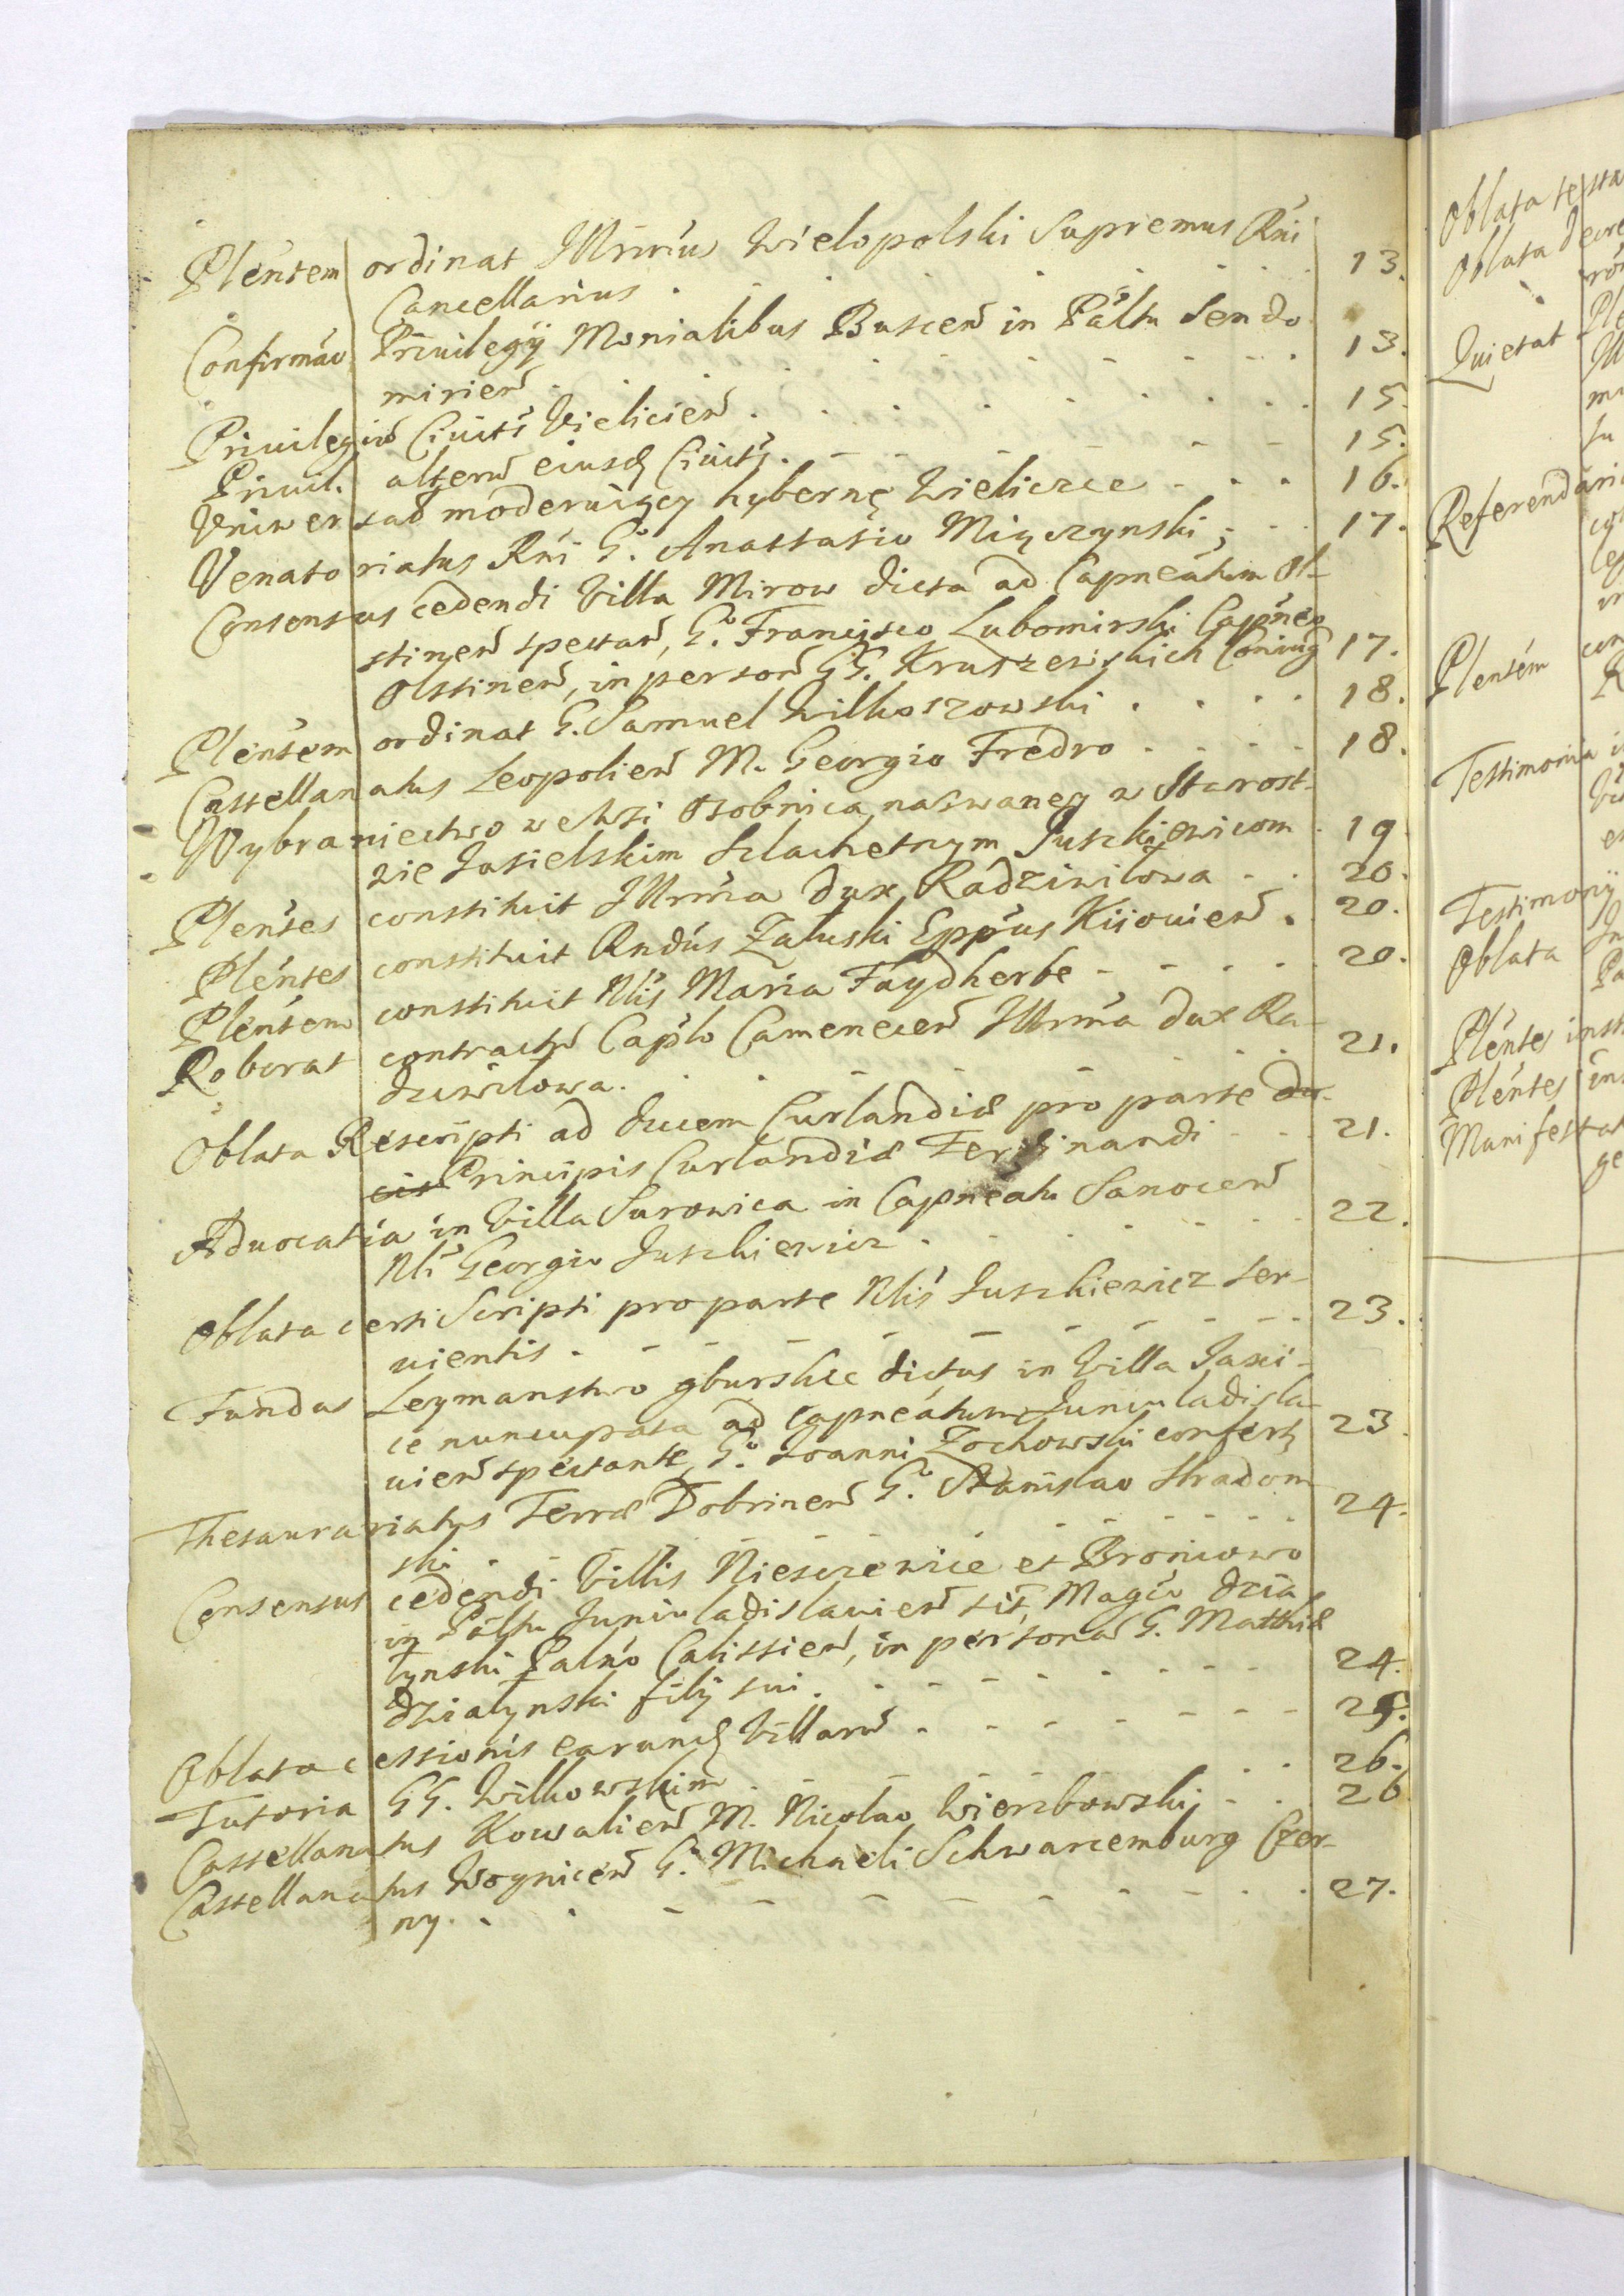 Plentem ordinat Illrmus Wielopolski Supremus Rni
Cancellarius . . . . . . 13.
Confirmao Privilegij Monialibus Buscen in Paltu Sendo
mirien . . . . . . 13.
Privilegiu Civits Vielicien . . . . . 15.
Privil. alterū eiusdę Civits. . . . . 15.
Uniwersał moderuiący hybernę Wieliczce . . . 16.
Venatoriatus Rni G. Anastasio Miączynski; . . 17.
Consensus cedendi Villa Mirow dicta ad Capneatum Ol-
stinen spectan, Go. Francisco Lubomirski Capneo
Olstinen, in person GG. Kruszewskich Coniug 17.
Plentem ordinat G. Samuel Wilkoszowski . . . . 18.
Castellanatus Leopolien M. Georgio Fredro . . . . 18.
Wybraniectwo we Wsi Osobnica nazwaney w Starost-
wie Jasielskim Szlachetnym Juszkiewicom . 19
Plentes constituit Illrma Dux Radziwiłowa . . 20.
Plentes constituit Rndus Załuski Eppus Kiiovien . 20.
Plentem constituit Nlis Maria Faydherbe . . . . . 20.
Roborat contractū Caplo Camenecen Illrma Dux Ra-
dziwiłowa. . . . . . . 21.
Oblata Rescripti ad Ducem Curlandiæ pro parte Du-
cis Principis Curlandiæ Ferdinandi . . . 21.
Advocatia in Villa Surowica in Capneatu Sanocen
Nli Georgio Juszkiewicz . . . . . . 22.
Oblata certi Scripti pro parte Nlis Juszkiewicz ser-
vientis . . . . . . . 23.
Fundus Leymanstwo gburskie dictus in Villa Jaxi-
ce nuncupata ad Capneatum Juniuladisla-
vien spectante, Go. Joanni Zochowski confertę 23
Thesaurariatus Terræ Dobrinen Go. Stanislao Stradom
ski . . . . . . . 24.
Consensus cedendi Villis Niesczewice et Broniewo
in Paltu Juniuladislavien sit, Magco Dzia
łynski Palno Calissien, in persona G. Matthiæ
Działynski filij sui . . . . . . . 24.
Oblata cessionis earundę Villarū . . . . . . . 25.
Tutoria GG. Wilkowskim . . . . . . . 26.
Castellanatus Kowalien M. Nicolao Wierzbowski . . . 26
Castellanatus Woynicen G. Michaeli Schwarcemburg Czer-
ny. . . . . . . . 27.
Oblata testa
Oblata decre
Quietat
Referendari
Plentem
Testimonia
Testimony
Oblata
Plentes inst
Plentes
Manifestat